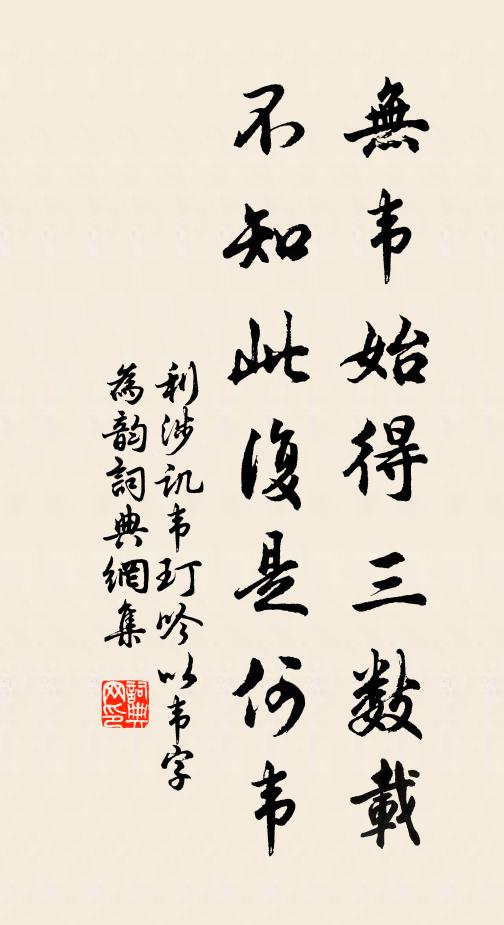 無韦始得三数載
不知此復是何韦
利涉讥韦玎吟以韦字
為韵詞典網集
詞典網印